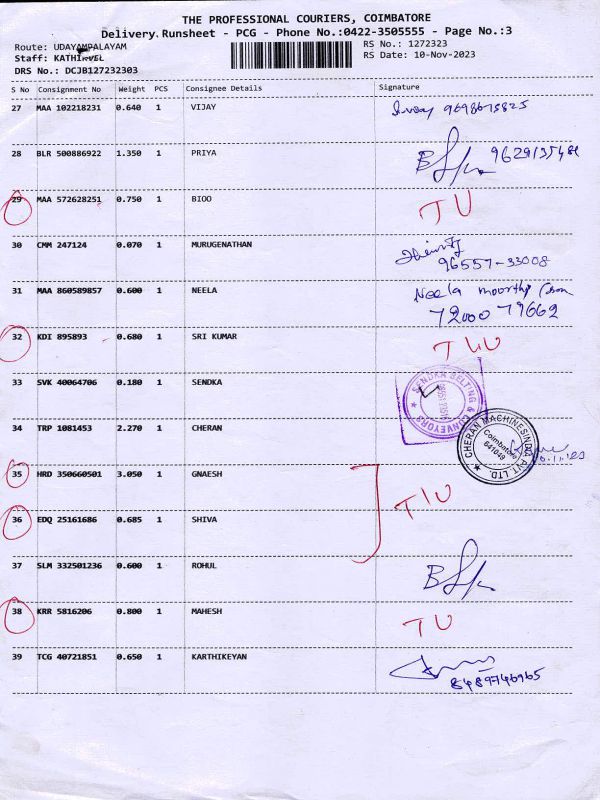 THE PROFESSIONAL COURIERS, COIMBATORE
Delivery Runsheet - PCG - Phone No.:0422-3505555 - Page No.:3
Route: UDAYAMPALAYAM
RS No.: 1272323
Staff: KATHIRVEL
RS Date: 10-Nov-2023
DRS No.: DCJB127232303
S No Consignment No Weight PCS Consignee Details Signature
27 MAA 102218231 0.640 1 VIJAY
28 BLR 500886922 1.350 1 PRIYA
29 MAA 572628251 0.750 1 BIOO TU
30 CMM 247124 0.070 1 MURUGENATHAN
96557-33008
31 MAA 860589857 0.600 1 NEELA Neela moorthy
72000 79662
32 KDI 895893 0.680 1 SRI KUMAR
33 SVK 40064706 0.180 1 SENDKA
SENDKA BELTING & CONVEYORS
34 TRP 1081453 2.270 1 CHERAN
CHERAN MACHINESINDIA PVT. LTD.
Coimbatore
641049
35 HRD 350660501 3.050 1 GNAESH
36 EDQ 25161686 0.685 1 SHIVA
37 SLM 332501236 0.600 1 ROHUL
38 KRR 5816206 0.800 1 MAHESH TU
39 TCG 40721851 0.650 1 KARTHIKEYAN
8489746965